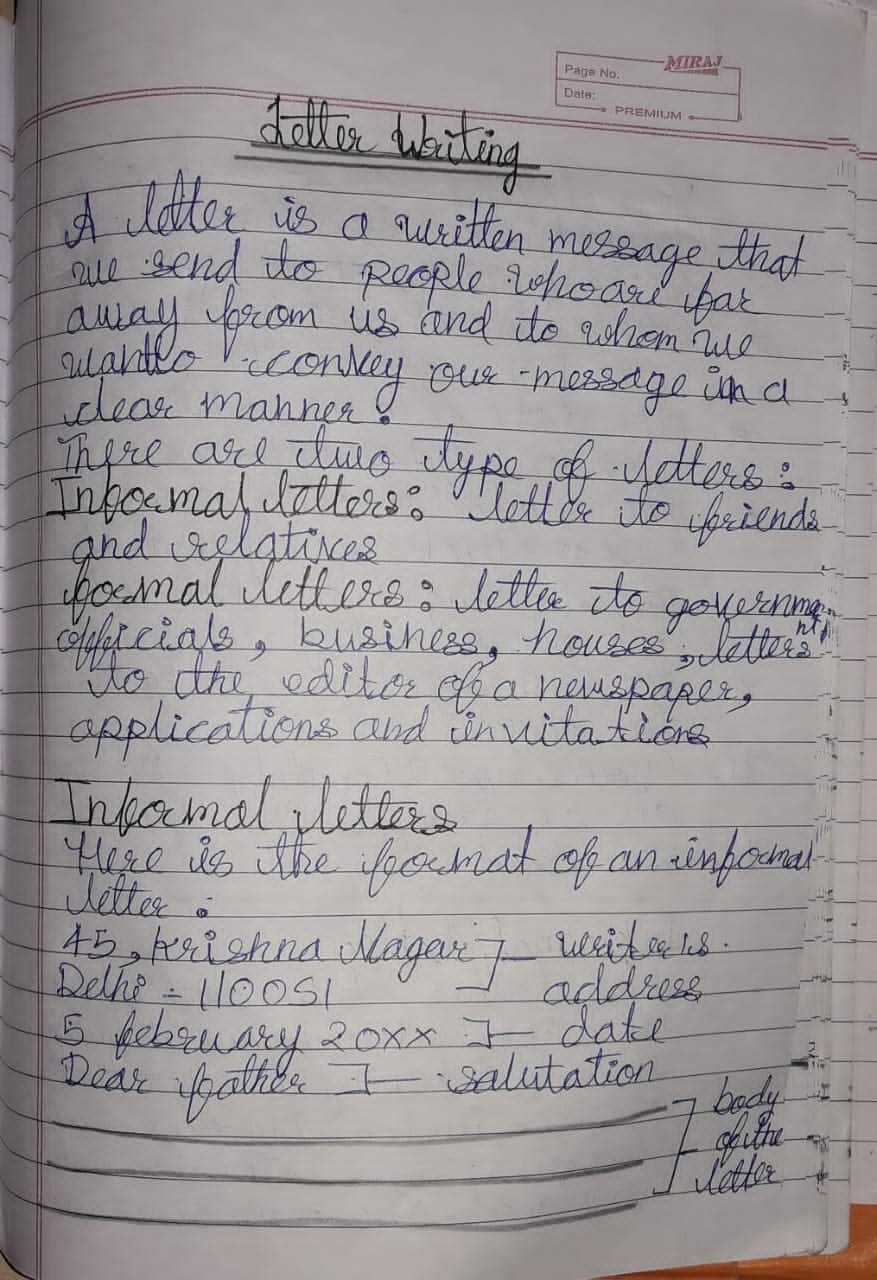 MIRAJ
Page No.
Date:
PREMIUM
Letter Writing
A letter is a written message that
we send to people who are far
away from us and to whom we
want to convey our message in a
clear manner.
There are two type of letters:
Informal letters: letter to friends
and relatives
formal letters: letter to government
officials, business, houses, letters
to the editor of a newspaper,
applications and invitations
Informal letters
Here is the format of an informal
letter :
45, Krishna Nagar ]— writer's
Delhi - 110051 address
5 february 20xx ]— date
Dear father ]— salutation
body
of the
letter